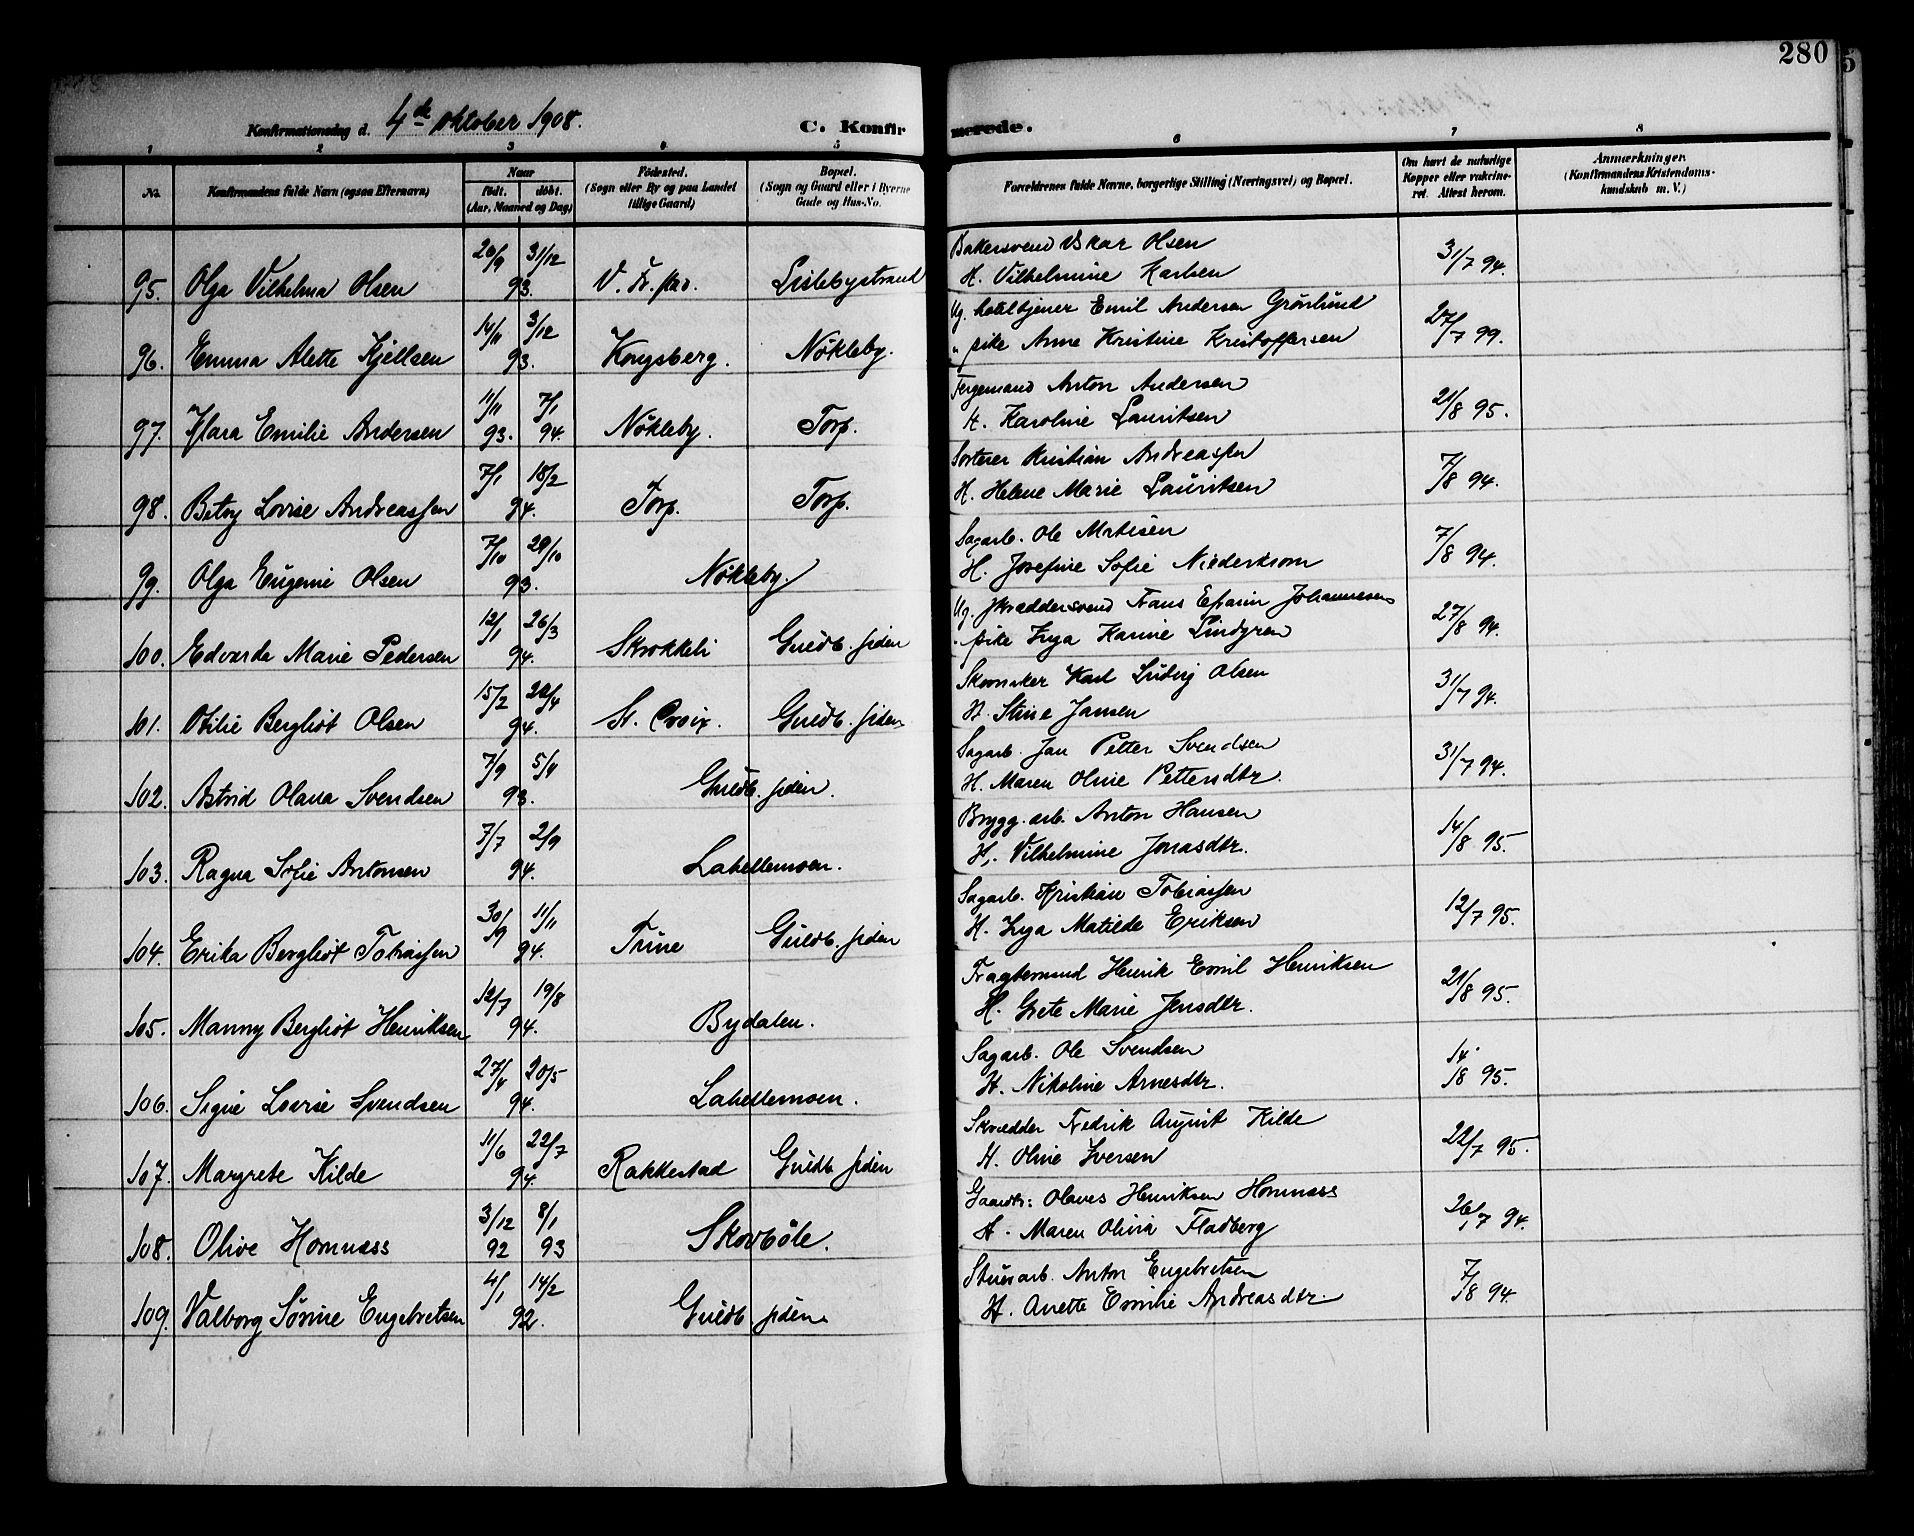 280
Konfirmationsdag d. 4de Oktober 1908. C. Konfirmerede.
1 2 3 4 5 6 7 8
No. Konfirmandens fulde Navn (ogsaa Efternavn). Naar født. døbt. (Aar, Maaned og Dag) Fødested. (Sogn eller By og paa Landet tillige Gaard) Bopæl. (Sogn og Gaard eller i Byerne Gade og Hus-No. Forældrenes fulde Navne, borgerlige Stilling (Næringsvei) og Bopæl. Om havt de naturlige Kopper eller vaccineret. Attest herom. Anmærkninger. (Konfirmandens Kristendomskundskab m. V.)
95. Olga Vilhelma Olsen 20/9 31/12 93. V. Fr.stad. Lislebystrand Bakersvend Oskar Olsen
H. Vilhelmine Karlsen 31/7 94.
96. Emma Alette Kjellsen 14/11 3/12 93. Kongsberg. Nökleby. Ug. hoteltjener Emil Andersen Grönlund
" pike Anne Kristine Kristoffersen 27/7 99.
97. Klara Emilie Andersen 11/11 93. 7/1 94. Nökleby. Torp. Fergemand Anton Andersen
H. Karoline Lauritsen 21/8 95.
98. Betsy Lovise Andreassen 7/1 18/2 94. Torp. Torp. Sorterer Kristian Andreassen
H. Helene Marie Lauritsen 7/8 94.
99. Olga Eugenie Olsen 7/10 29/10 93. Nökleby. Sagarb. Ole Matisen
H. Josefine Sofie Niederstrom 7/8 94.
100. Edvarda Marie Pedersen 12/1 26/3 94. Skrokkeli Guldb. siden Ug. skræddersvend Frans Efraim Johannesen
" pike Inga Karine Lindgren 27/8 94.
101. Otilie Bergliot Olsen 15/2 22/4 94. St. Croix. Guldb. siden Skomaker Karl Ludvig Olsen
H. Stine Jansen 31/7 94.
102. Astrid Olana Svendsen 7/9 5/11 93. Guldb. siden. Sagarb. Jan Petter Svendsen
H. Maren Oline Pettersdtr. 31/7 94.
103. Ragna Sofie Antonsen 7/7 2/9 94. Lahellemoen. Brygg. arb. Anton Hansen
H. Vilhelmine Jonasdtr. 14/8 95.
104. Erika Bergliot Tobiassen 30/9 11/11 94. Trine Guldb. siden Sagarb. Kristian Tobiassen
H. Inga Matilde Eriksen 12/7 95.
105. Manny Bergliot Henriksen 12/7 19/8 94. Bydalen. Fragtemand Henrik Emil Henriksen
H. Grete Marie Jensdtr. 21/8 95.
106. Signe Lovise Svendsen 27/4 20/5 94. Lahellemoen. Sagarb. Ole Svendsen
H. Nikoline Arnesdtr. 14/8 95.
107. Margrete Kilde 11/6 22/7 94. Rakkestad Guldb siden Skrædder Fredrik August Kilde
H. Oline Iversen 22/7 95.
108. Olive Homnæss 3/12 92 8/1 93 Skovböle. Gaardbr: Olaves Henriksen Homnæss
H. Maren Olivia Fladberg 26/7 94.
109. Valborg Sörine Engebretsen 4/1 14/2 92. Guldb. siden Stuerarb. Anton Engebretsen
H. Anette Emilie Andreasdtr. 7/8 94.